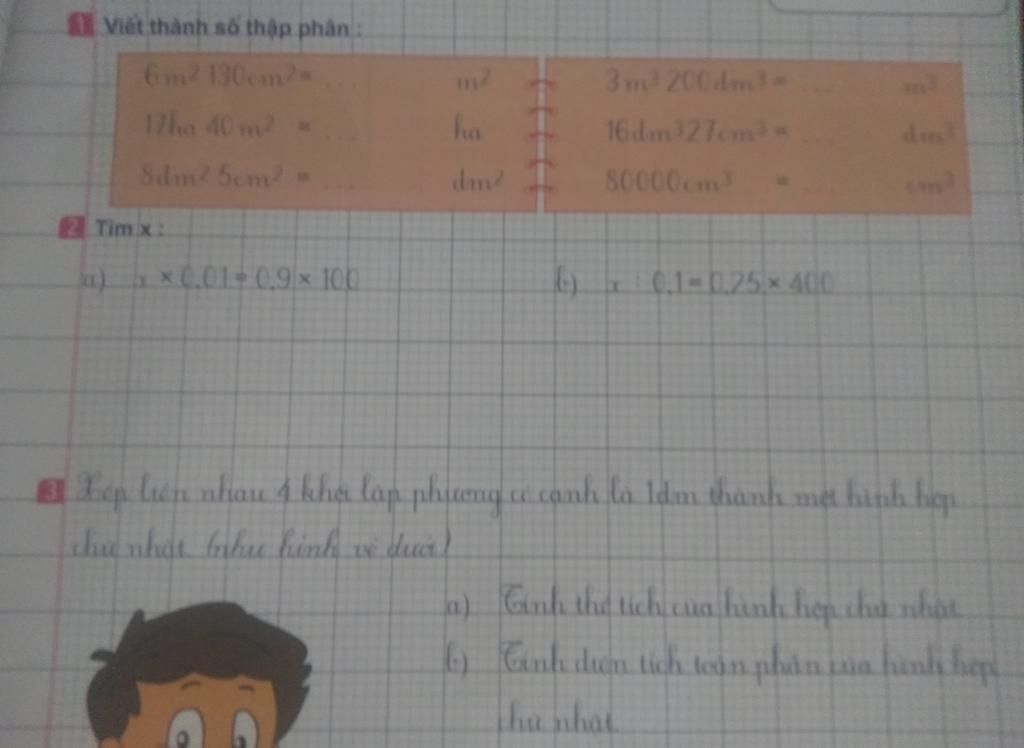 1 Viết thành số thập phân :
6m² 130cm² = ... m² 3m³ 200dm³ = ... m³
17ha 40m² = ... ha 16dm³27cm³ = ... dm³
8dm² 5cm² = ... dm² 80000cm³ = ... cm³
2 Tìm x :
a) x × 0,01 = 0,9 × 100 b) x : 0,1 = 0,25 × 400
3 Xếp liền nhau 4 khối lập phương có cạnh là 1dm thành một hình hộp
chữ nhật (như hình vẽ dưới)
a) Tính thể tích của hình hộp chữ nhật
b) Tính diện tích toàn phần của hình hộp
chữ nhật